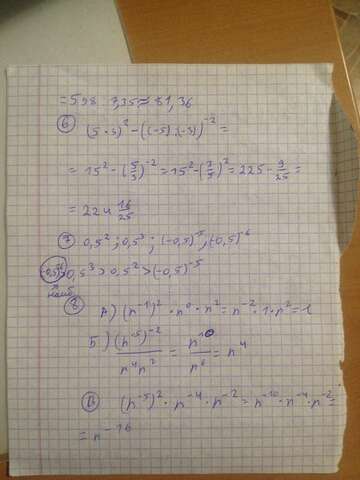 =598 : 7,35≈81,36
⑥ (5·3)² - ((-5):(-3))⁻² =
= 15² - (5/3)⁻² = 15² - (3/5)² = 225 - 9/25 =
= 224 16/25
⑦ 0,5²; 0,5³; (-0,5)⁻⁵; (-0,5)⁻⁶
(-0,5)⁻⁶ > 0,5³ > 0,5² > (-0,5)⁻⁵
наиб
⑧ А) (n⁻¹)² · n⁰ · n² = n⁻² · 1 · n² = 1
Б) (n⁻⁵)⁻² / n⁴n² = n¹⁰ / n⁶ = n⁴
В (n⁻⁵)² · n⁻⁴ · n⁻² = n⁻¹⁰ · n⁻⁴ · n⁻² =
= n⁻¹⁶